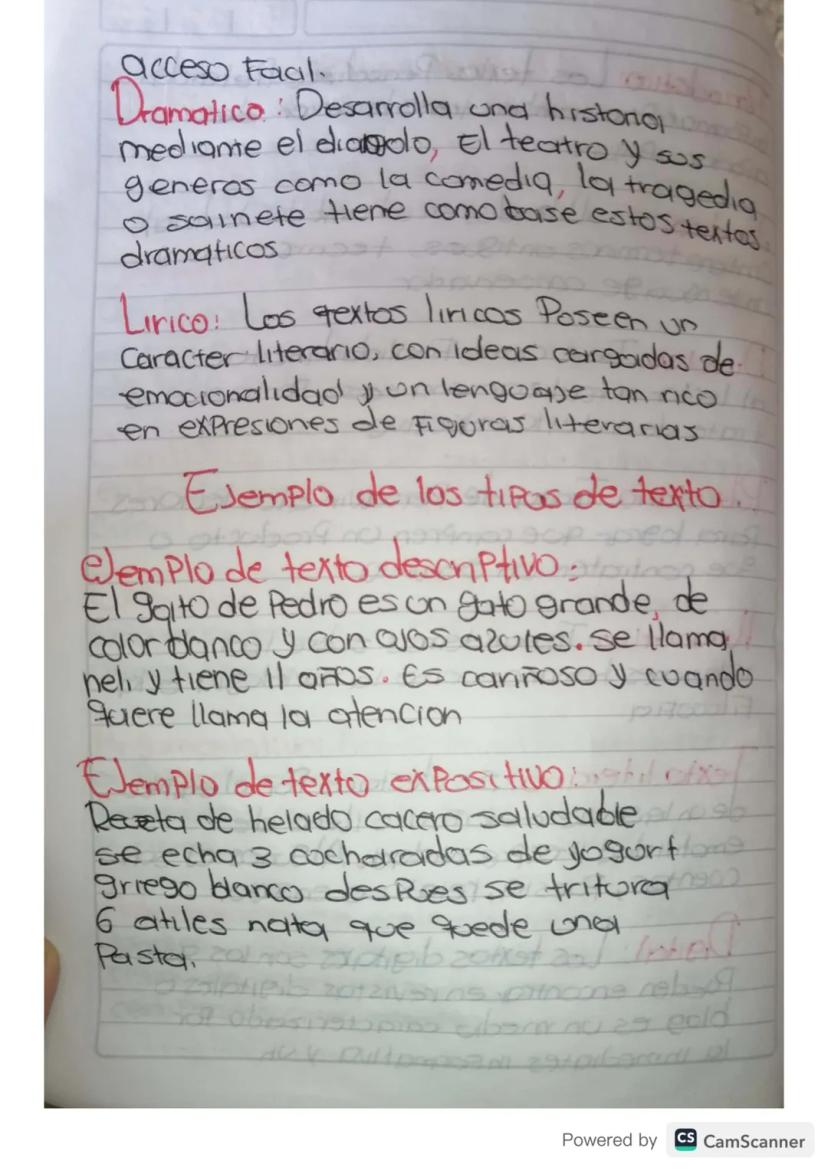 acceso Facil.
Dramatico: Desarrolla una historia
mediante el diagolo, El teatro y sus
generos como la comedia, la tragedia
o sainete tiene como base estos textos
dramaticos
Lirico: Los textos liricos Poseen un
Caracter literario, con ideas cargadas de
emocionalidad y un lenguaje tan rico
en exPresiones de Figuras literarias
Ejemplo de los tipos de texto.
ejemplo de texto descriptivo:
El gaito de Pedro es un gato grande, de
color blanco y con ojos azules. se llama
neli y tiene 11 años. Es cariñoso y cuando
quere llama la atencion
EJemplo de texto expositivo:
Receta de helado cacero saludable
se echa 3 cocharadas de yogurt
griego blanco desPues se tritura
6 atiles nata que quede una
Pasta.
Powered by CS CamScanner